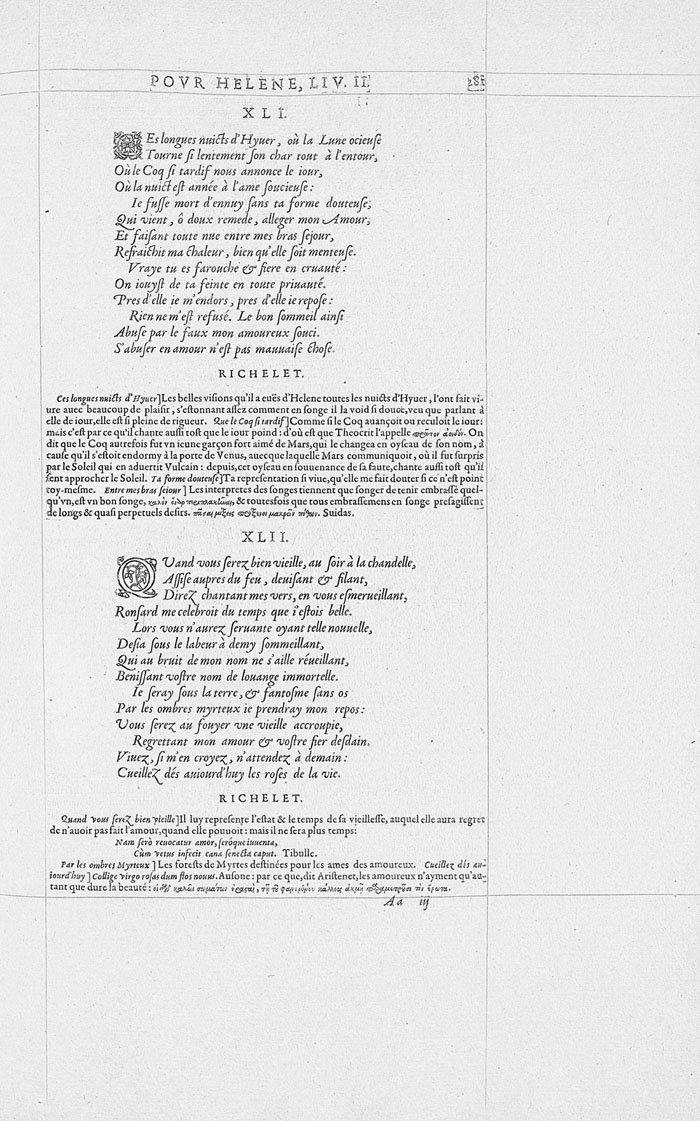 POVR HELENE, LIV. II.
XLI.
CEs longues nuicts d'Hyuer, où la Lune ocieuſe
Tourne ſi lentement ſon char tout à l'entour,
Où le Coq ſi tardif nous annonce le iour,
Où la nuict eſt année à l'ame ſoucieuſe:
Ie fuſſe mort d'ennuy ſans ta forme douteuſe,
Qui vient, ô doux remede, alleger mon Amour,
Et faiſant toute nue entre mes bras ſejour,
Refraichit ma chaleur, bien qu'elle ſoit menteuſe.
Vraye tu es farouche & fiere en cruauté:
On iouyſt de ta feinte en toute priuauté.
Pres d'elle ie m'endors, pres d'elle ie repoſe:
Rien ne m'eſt refuſé. Le bon ſommeil ainſi
Abuſe par le faux mon amoureux ſouci.
S'abuſer en amour n'eſt pas mauuaiſe choſe.
RICHELET.
Ces longues nuicts d'Hyuer]Les belles viſions qu'il a euës d'Helene toutes les nuicts d'Hyuer, l'ont fait vi-
ure auec beaucoup de plaiſir, s'eſtonnant aſſez comment en ſonge il la void ſi douce, veu que parlant à
elle de iour, elle eſt ſi pleine de rigueur. Que le Coq ſi tardif]Comme ſi le Coq auançoit ou reculoit le iour:
mais c'eſt par ce qu'il chante auſſi toſt que le iour poind: d'où eſt que Theocrit l'appelle On
dit que le Coq autrefois fut vn ieune garçon fort aimé de Mars, qui le changea en oyſeau de ſon nom, à
cauſe qu'il s'eſtoit endormy à la porte de Venus, auecque laquelle Mars communiquoit, où il fut ſurpris
par le Soleil qui en aduertit Vulcain: depuis, cet oyſeau en ſouuenance de ſa faute, chante auſſi toſt qu'il
ſent approcher le Soleil. Ta forme douteuſe]Ta repreſentation ſi viue, qu'elle me fait douter ſi ce n'eſt point
toy-meſme. Entre mes bras ſeiour] Les interpretes des ſonges tiennent que ſonger de tenir embraſſé quel-
qu'vn, eſt vn bon ſonge, & toutesfois que tous embraſſemens en ſonge preſagiſſent
de longs & quaſi perpetuels deſirs. Suidas.
XLII.
QVand vous ſerez bien vieille, au ſoir à la chandelle,
Aſſiſe aupres du feu, deuiſant & filant,
Direz chantant mes vers, en vous eſmerueillant,
Ronſard me celebroit du temps que i'eſtois belle.
Lors vous n'aurez ſeruante oyant telle nouuelle,
Deſia ſous le labeur à demy ſommeillant,
Qui au bruit de mon nom ne s'aille réueillant,
Beniſſant voſtre nom de louange immortelle.
Ie ſeray ſous la terre, & fantoſme ſans os
Par les ombres myrteux ie prendray mon repos:
Vous ſerez au fouyer vne vieille accroupie,
Regrettant mon amour & voſtre fier deſdain.
Viuez, ſi m'en croyez, n'attendez à demain:
Cueillez dés auiourd'huy les roſes de la vie.
RICHELET.
Quand vous ſerez bien vieille]Il luy repreſente l'eſtat & le temps de ſa vieilleſſe, auquel elle aura regret
de n'auoir pas fait l'amour, quand elle pouuoit: mais il ne ſera plus temps:
Nam ſerò reuocatur amor, ſeróque iuuenta,
Cùm vetus inſecit cana ſenecta caput. Tibulle.
Par les ombres Myrteux] Les foreſts de Myrtes deſtinées pour les ames des amoureux. Cueillez dés au-
iourd'huy] Collige virgo roſas dum flos nouus. Auſone: par ce que, dit Ariſtenet, les amoureux n'ayment qu'au-
tant que dure la beauté:
Aa iij